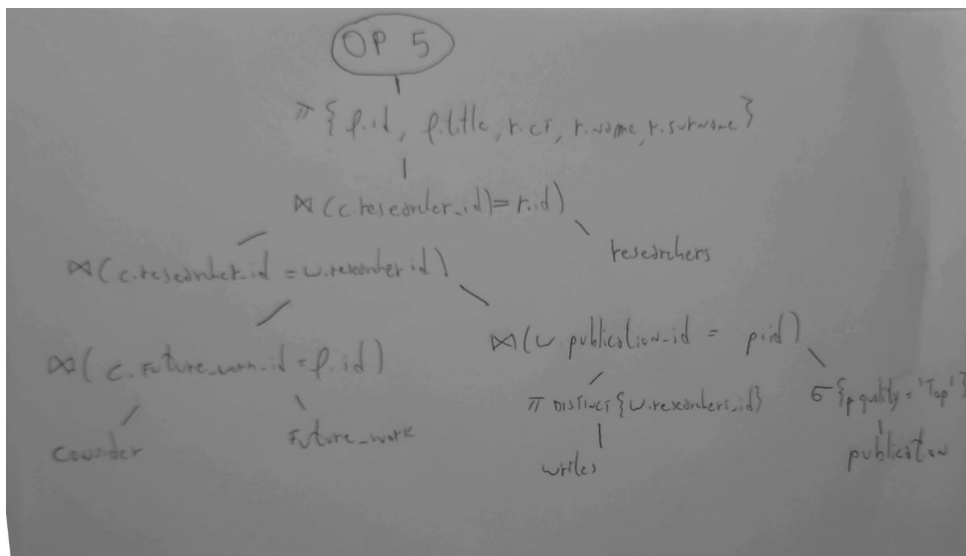 OP 5
π { f.id, f.title, r.cf, r.name, r.surname }
⋈ (c.researcher_id) = r.id)
researchers
⋈ (c.researcher_id = w.researcher id)
⋈ (w.publication_id = p.id)
⋈ ( c.Future_work_id = f.id)
π DISTINCT {w.researchers_id}
σ {p quality = 'Top'}
consider
Future_work
writes
publication